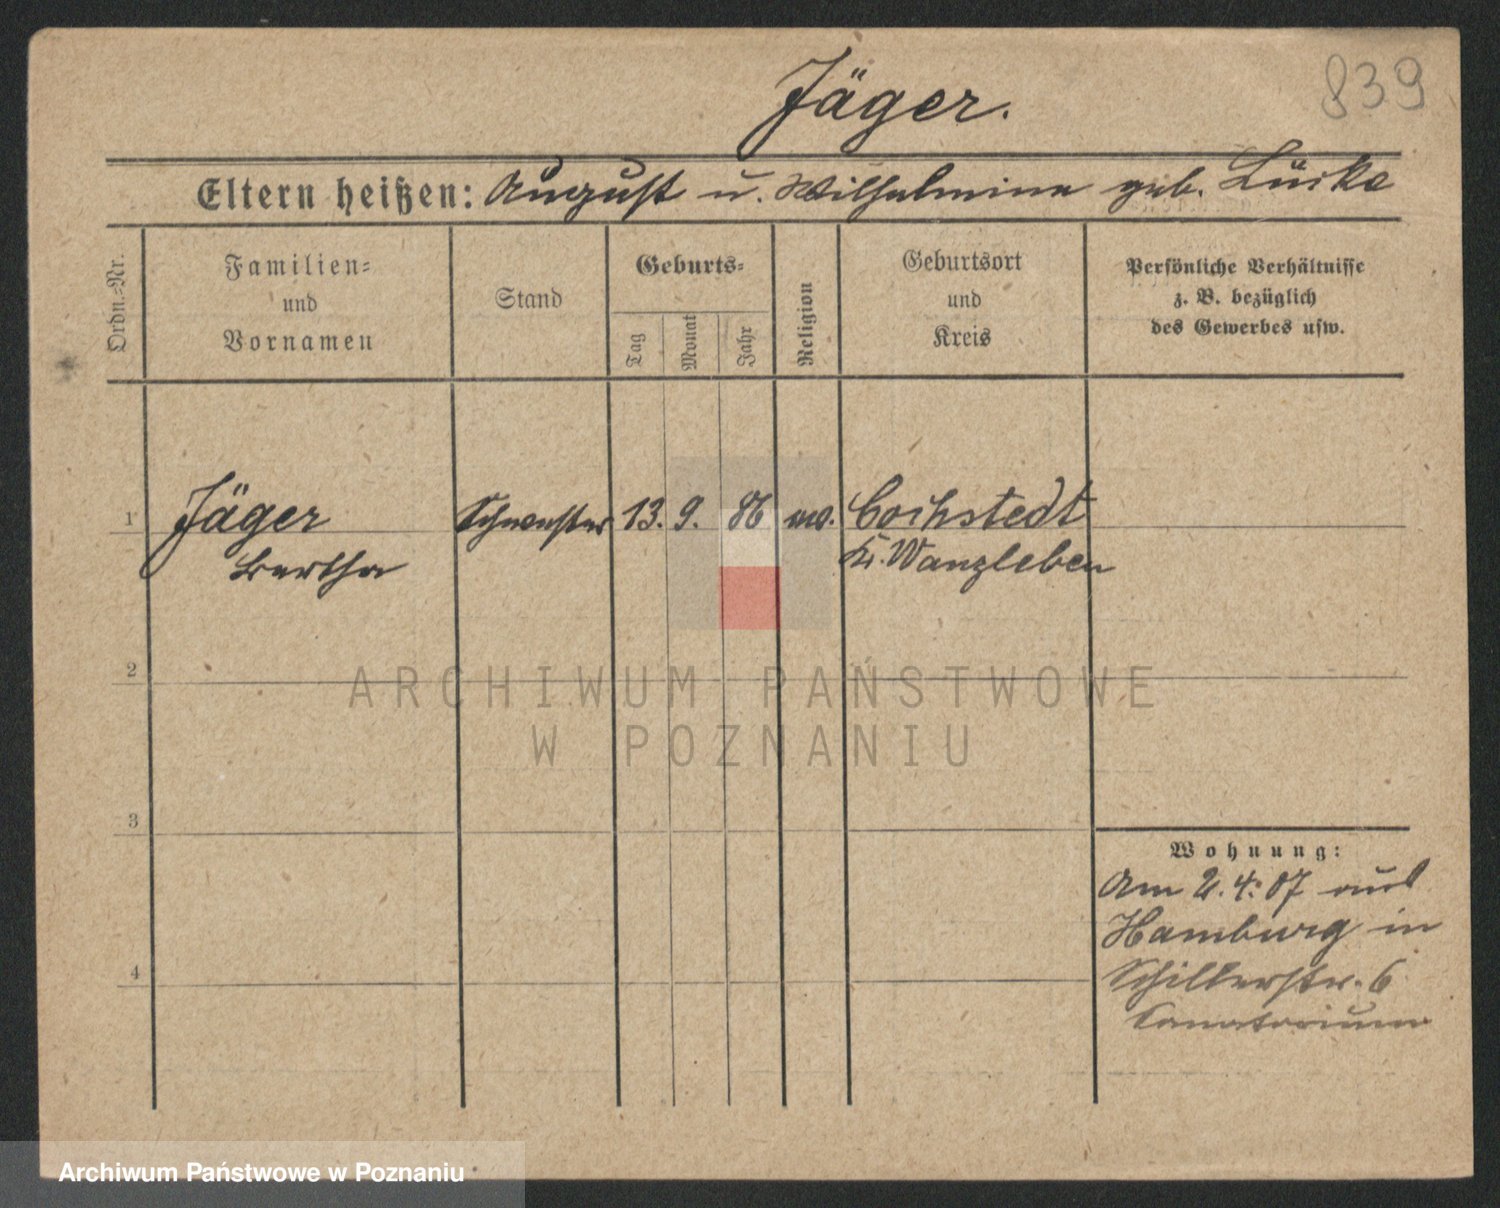 839
Jäger.
Eltern heißen: August u. Wilhelmine geb. Lücke
Ordn.=Nr.
Familien=
und
Vornamen
Stand
Geburts=
Tag
Monat
Jahr
Religion
Geburtsort
und
Kreis
Persönliche Verhältnisse
z. B. bezüglich
des Gewerbes usw.
1 Jäger Schwester 13. 9. 86 ev. Cochstedt
Bertha Kr. Wanzleben
2
3
4
Wohnung:
Am 2.4.07 aus
Hamburg in
Schillerstr. 6
Sanatorium
ARCHIWUM PAŃSTWOWE
W POZNANIU
Archiwum Państwowe w Poznaniu